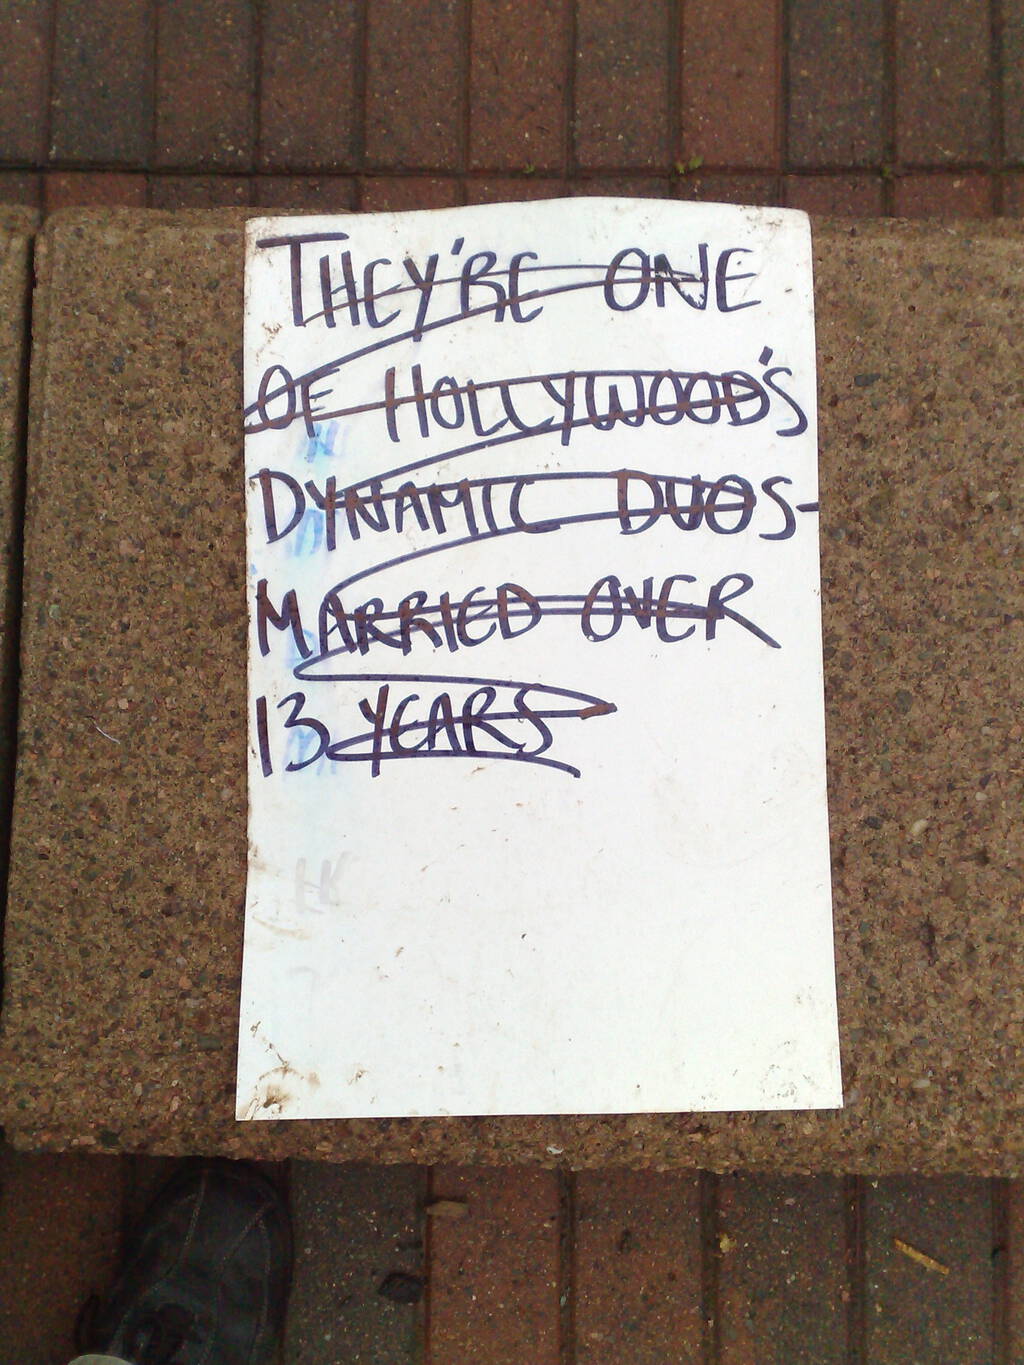 THEY'RE ONE
OF HOLLYWOOD'S
DYNAMIC DUOS-
MARRIED OVER
13 YEARS